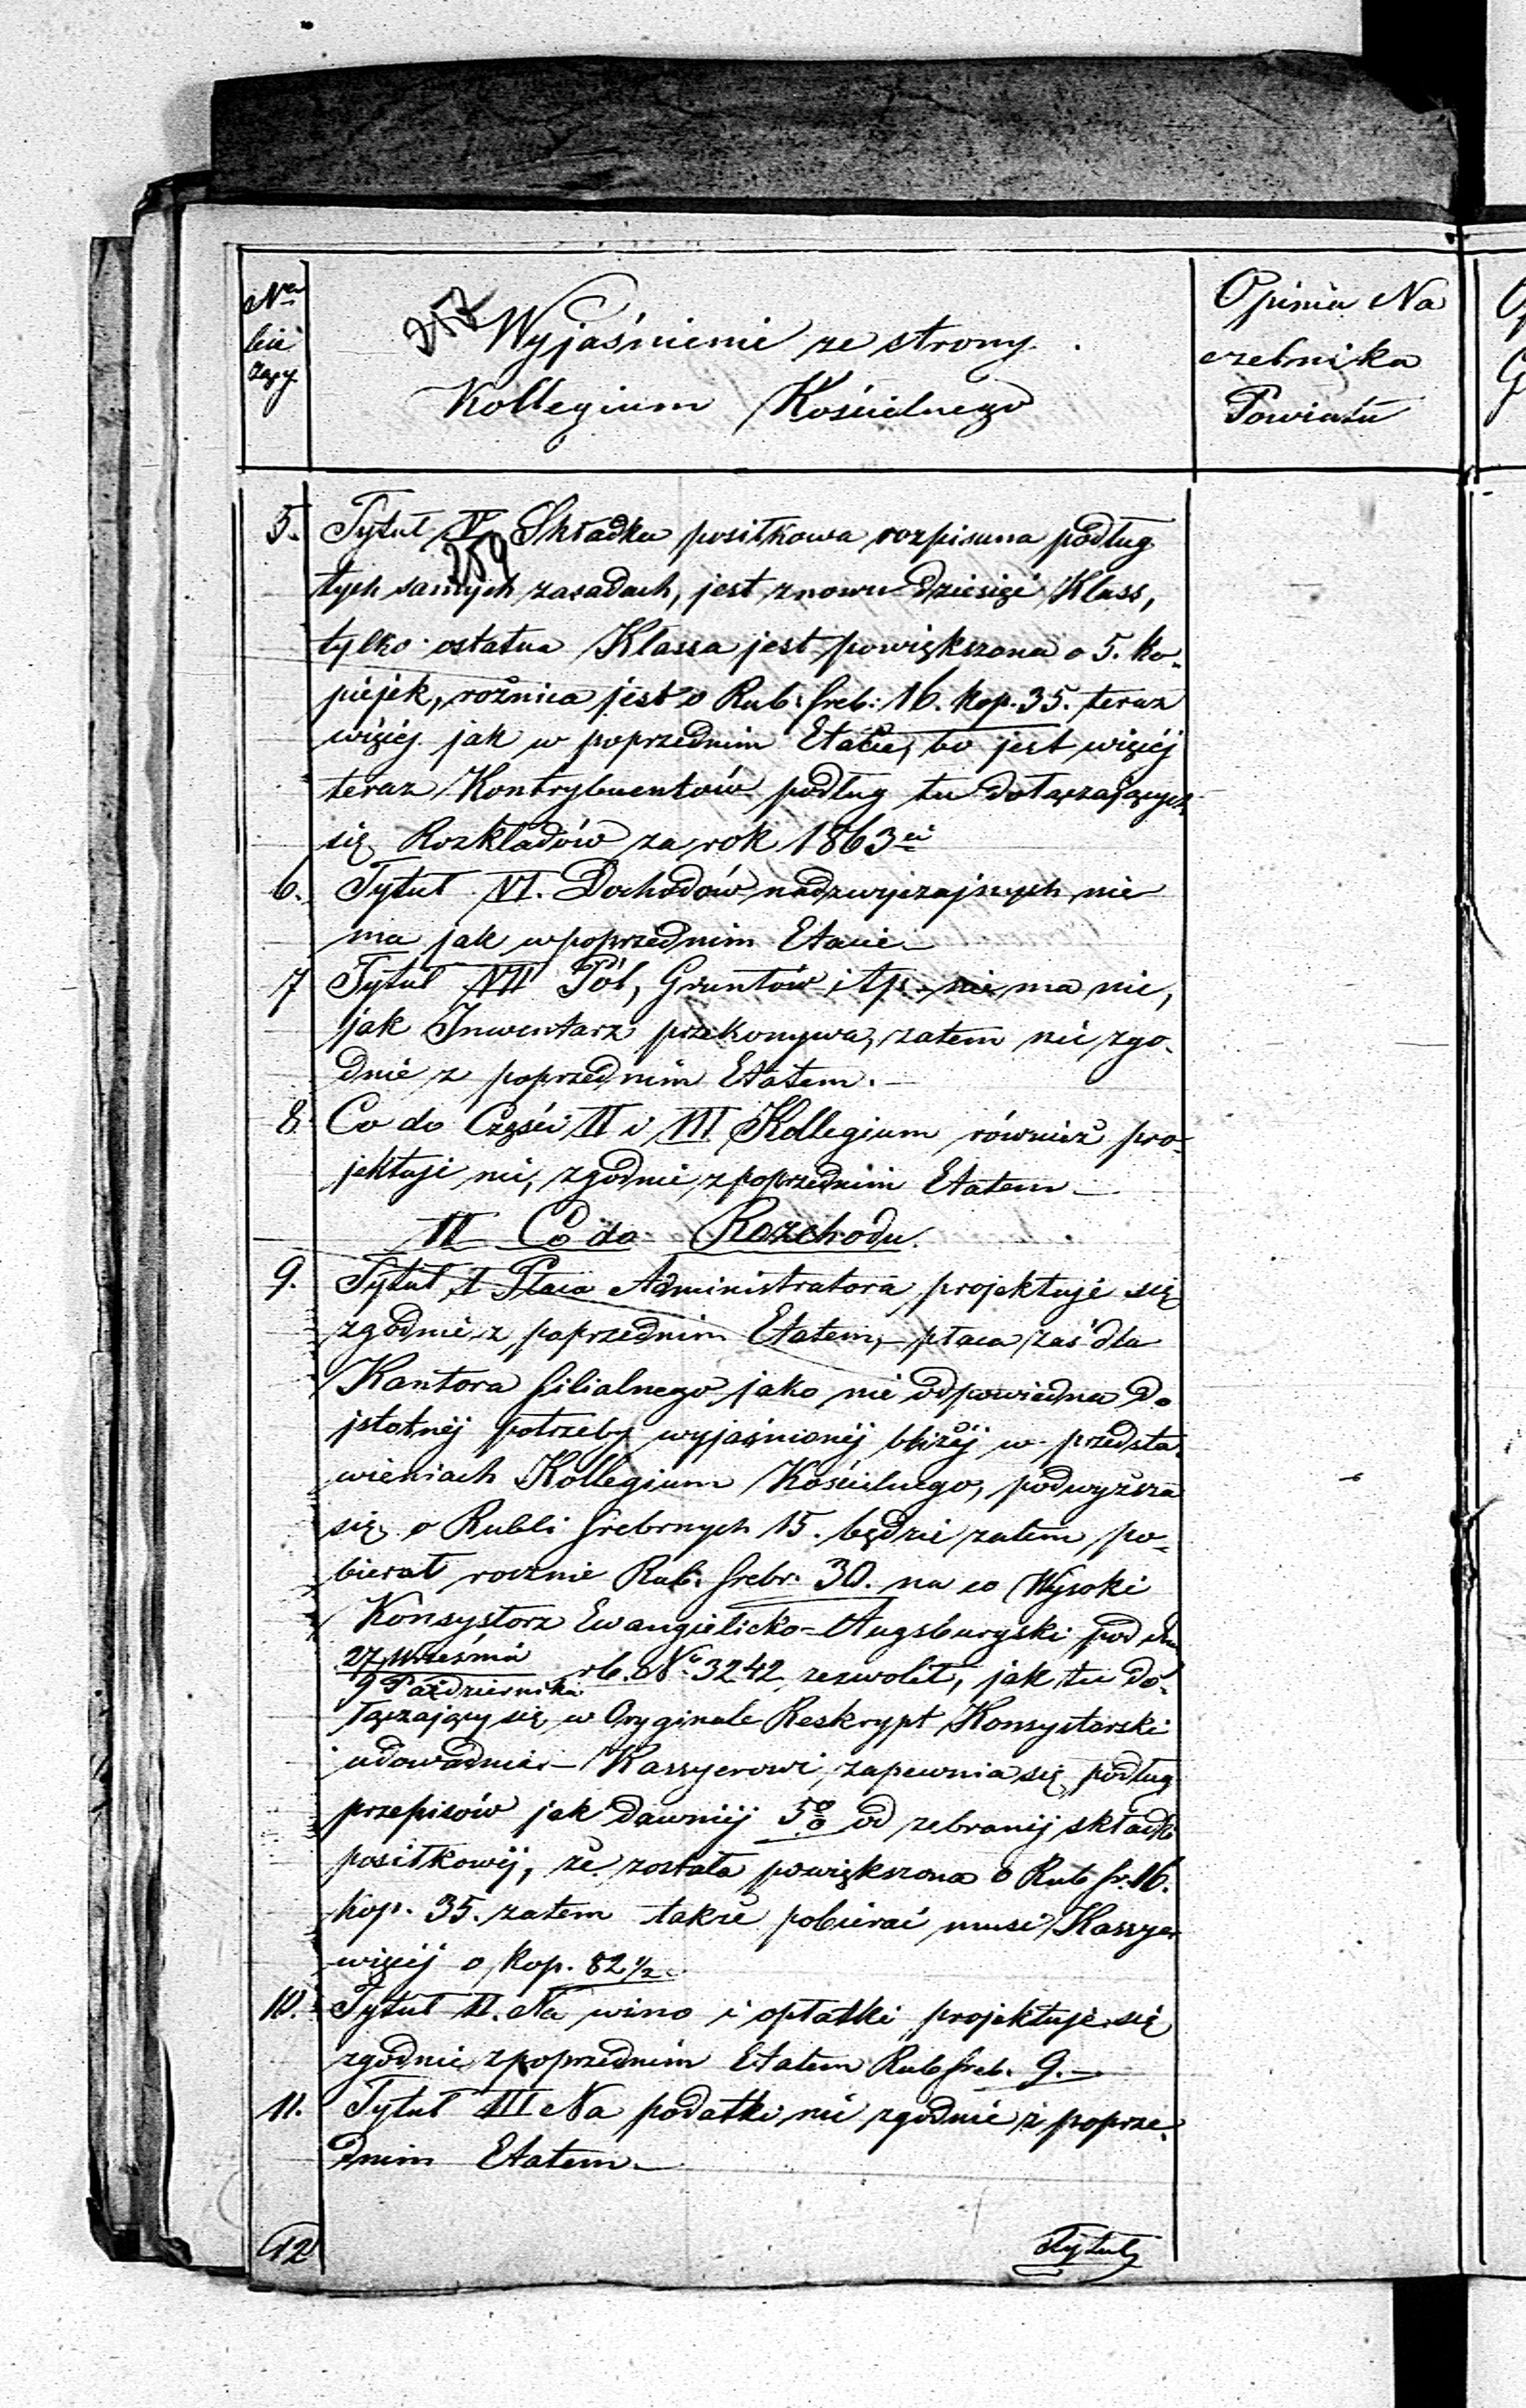 Nro
bie
żący
217
Wyjaśnienie ze strony
Kollegium Kościelnego
Opinia Na
czelnika
Powiatu
5. Tytuł V. Składka posiłkowa rozpisana podług
259
tych samych zasadach, jest znowu dziesięć Klass,
tylko ostatna Klassa jest powiększona o 5. ko-
piejek, rożnica jest o Rub. sreb: 16. kop. 35. teraz
więcej jak w poprzednim Etacie, bo jest więcej
teraz Kontrybuentów podług tu dołączających
się Rozkladów za rok 1863
6. Tytuł VI. Dochodów nadzwyczajnych nie
ma jak w poprzednim Etacie
7 Tytuł VII Pól, Gruntów i tp. nie ma nic,
jak Inwentarz przekonywa, zatem nic zgo-
dnie z poprzednim Etatem.
8. Co do Części II i III Kollegium również pro-
jektuje nic, zgodnie z poprzednim Etatem
II Co do Rozchodu.
9. Tytuł I Płaca Administratora projektuje się
zgodnie z poprzednim Etatem, płaca zaś dla
Kantora filialnego jako nie odpowiedna do
jstotnéj potrzeby wyjaśnionéj bliżéj w przedsta-
wieniach Kollegium Kościelnego, podwyższa
się o Rubli srebrnych 15. będzie zatem po-
bierał rocznie Rub. srebr. 30. na co Wysoki
Konsystorz Ewangielicko-Augsburgski pod dn.
27 Września
9 Października
rb. No 3242 zezwolił, jak tu do-
łączający się w Oryginale Reskrypt Konsystorski
udowadnia. Kassyerowi zapewnia się podług
przepisów jak dawniéj 5% od zebranéj składki
posiłkowéj, że została powiększona o Rub sr. 16.
kop. 35. zatem także pobierać musi Kassyer
więcéj o kop. 82½.
10. Tytuł II. Na wino i opłatki projektuje się
zgodnie z poprzednim Etatem Rub sreb. 9.
11. Tytuł III Na podatki nic zgodnie z poprze-
dnim Etatem
12
Tytuł